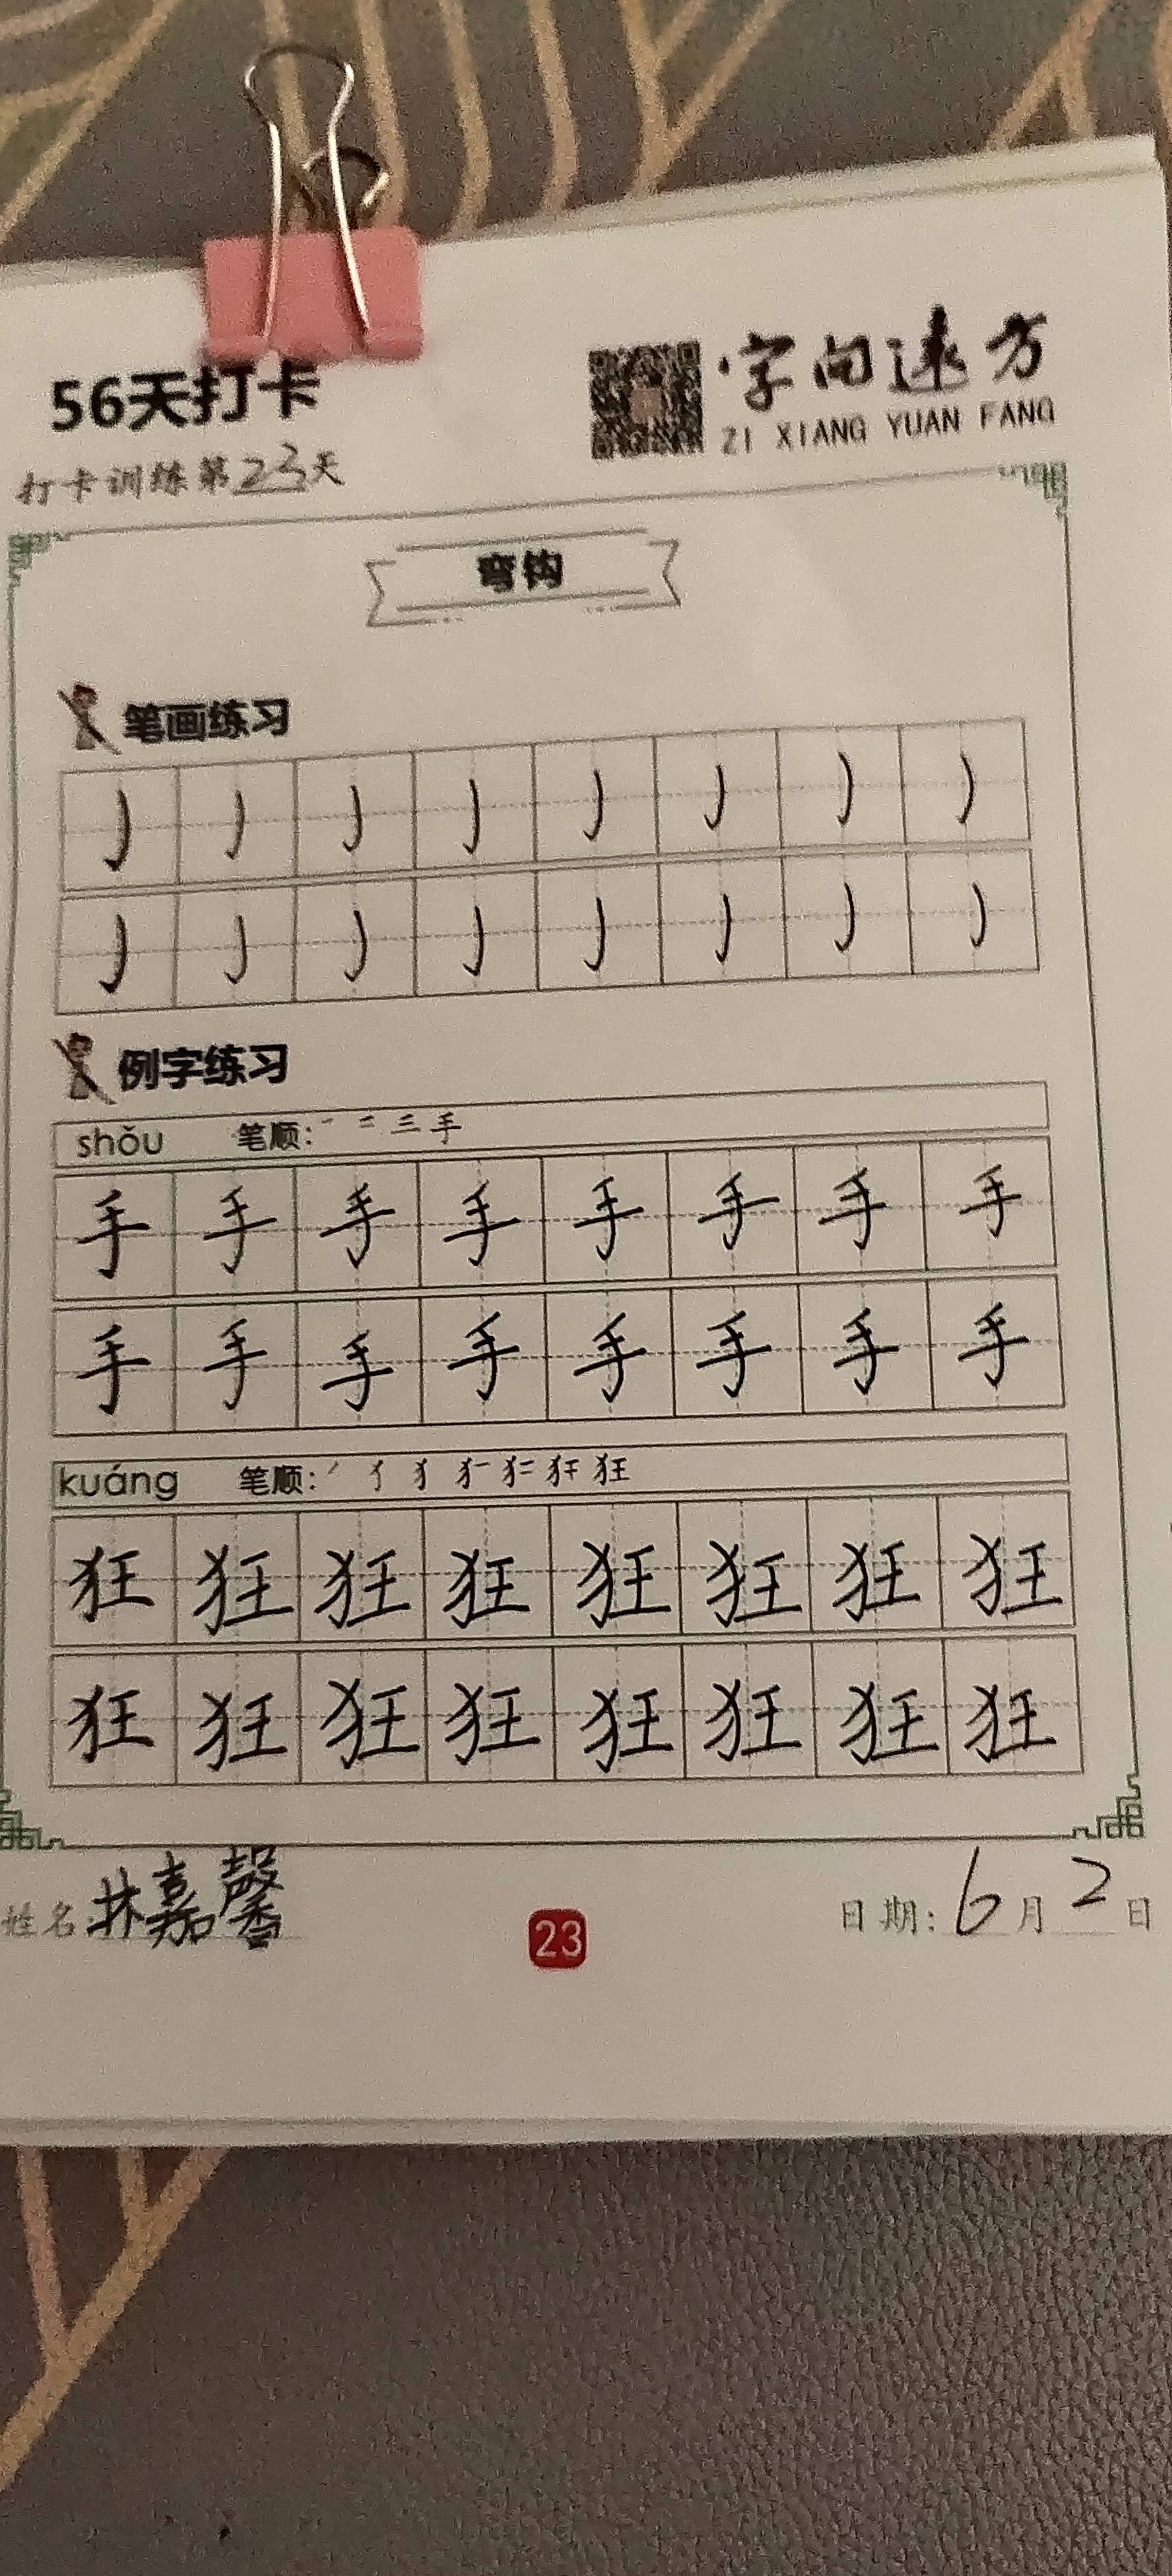 56天打卡
字向远方
ZI XIANG YUAN FANG
打卡训练第23天
弯钩
笔画练习
例字练习
shǒu 笔顺: 一 二 三 手
手 手 手 手 手 手 手 手
手 手 手 手 手 手 手 手
kuáng 笔顺: 狂
狂 狂 狂 狂 狂 狂 狂 狂
狂 狂 狂 狂 狂 狂 狂 狂
姓名: 林嘉馨
23
日期: 6月2日